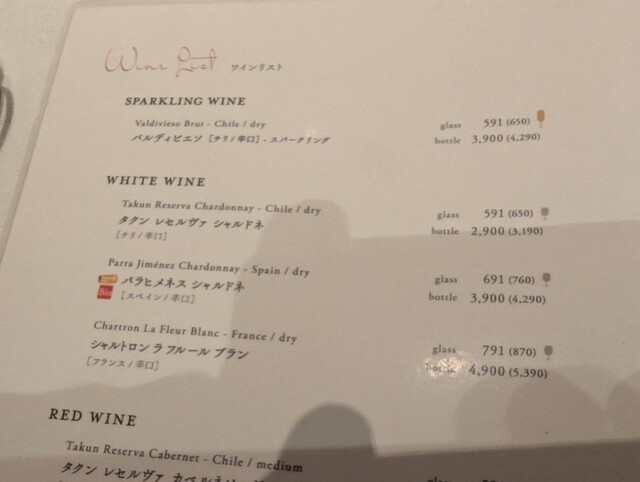 Wine List ワインリスト
SPARKLING WINE
Valdivieso Brut - Chile / dry
バルディビエソ [チリ/辛口] - スパークリング
glass 591 (650)
bottle 3,900 (4,290)
WHITE WINE
Takun Reserva Chardonnay - Chile / dry
タクン レセルヴァ シャルドネ
[チリ/辛口]
glass 591 (650)
bottle 2,900 (3,190)
Parra Jiménez Chardonnay - Spain / dry
パラヒメネス シャルドネ
Bio [スペイン/辛口]
glass 691 (760)
bottle 3,900 (4,290)
Chartron La Fleur Blanc - France / dry
シャルトロン ラ フルール ブラン
[フランス/辛口]
glass 791 (870)
bottle 4,900 (5,390)
RED WINE
Takun Reserva Cabernet - Chile / medium
タクン レセルヴァ カベルネ